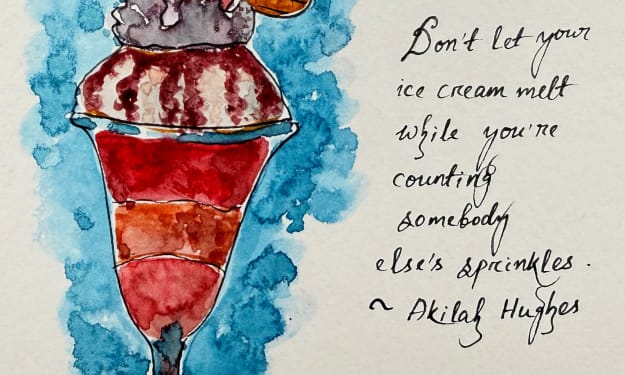 Don't let your
ice cream melt
while you're
counting
somebody
else's sprinkles.
~ Akilah Hughes